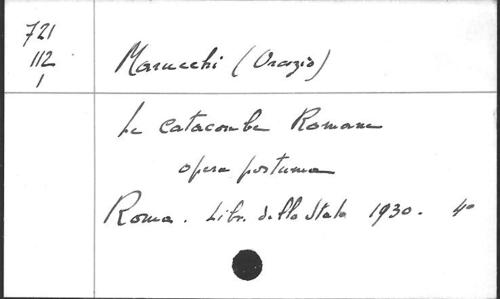 721
112
1
Marucchi (Orazio)
Le catacombe Romane
opera postuma
Roma. Libr. dello Stato 1930. 4°